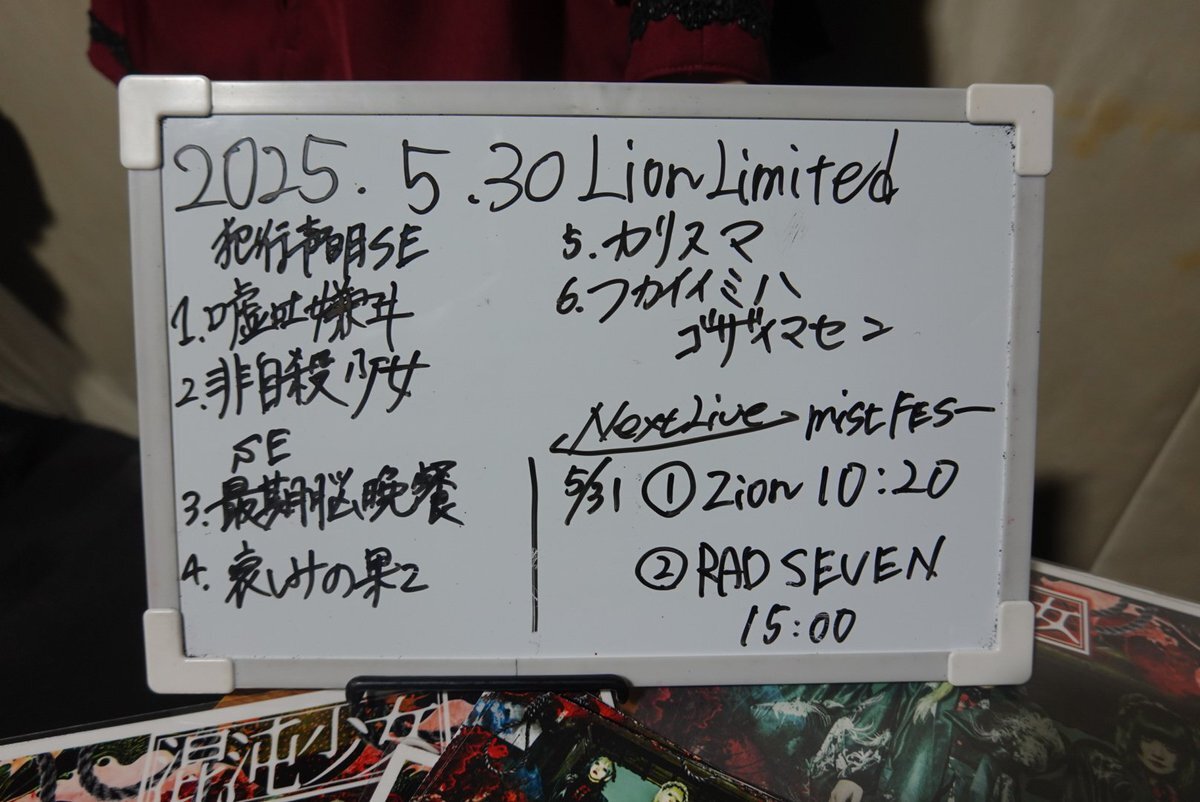 2025.5.30 Lion Limited
犯行声明SE
1.嘘吐嫌斗
2.非自殺少女
SE
3.最期脳晩餐
4.哀しみの果て
5.カリスマ
6.フカイイミハ
ゴザイマセン
Next Live mist FES
5/31 ①Zion 10:20
②RAD SEVEN
15:00
混沌少女
女